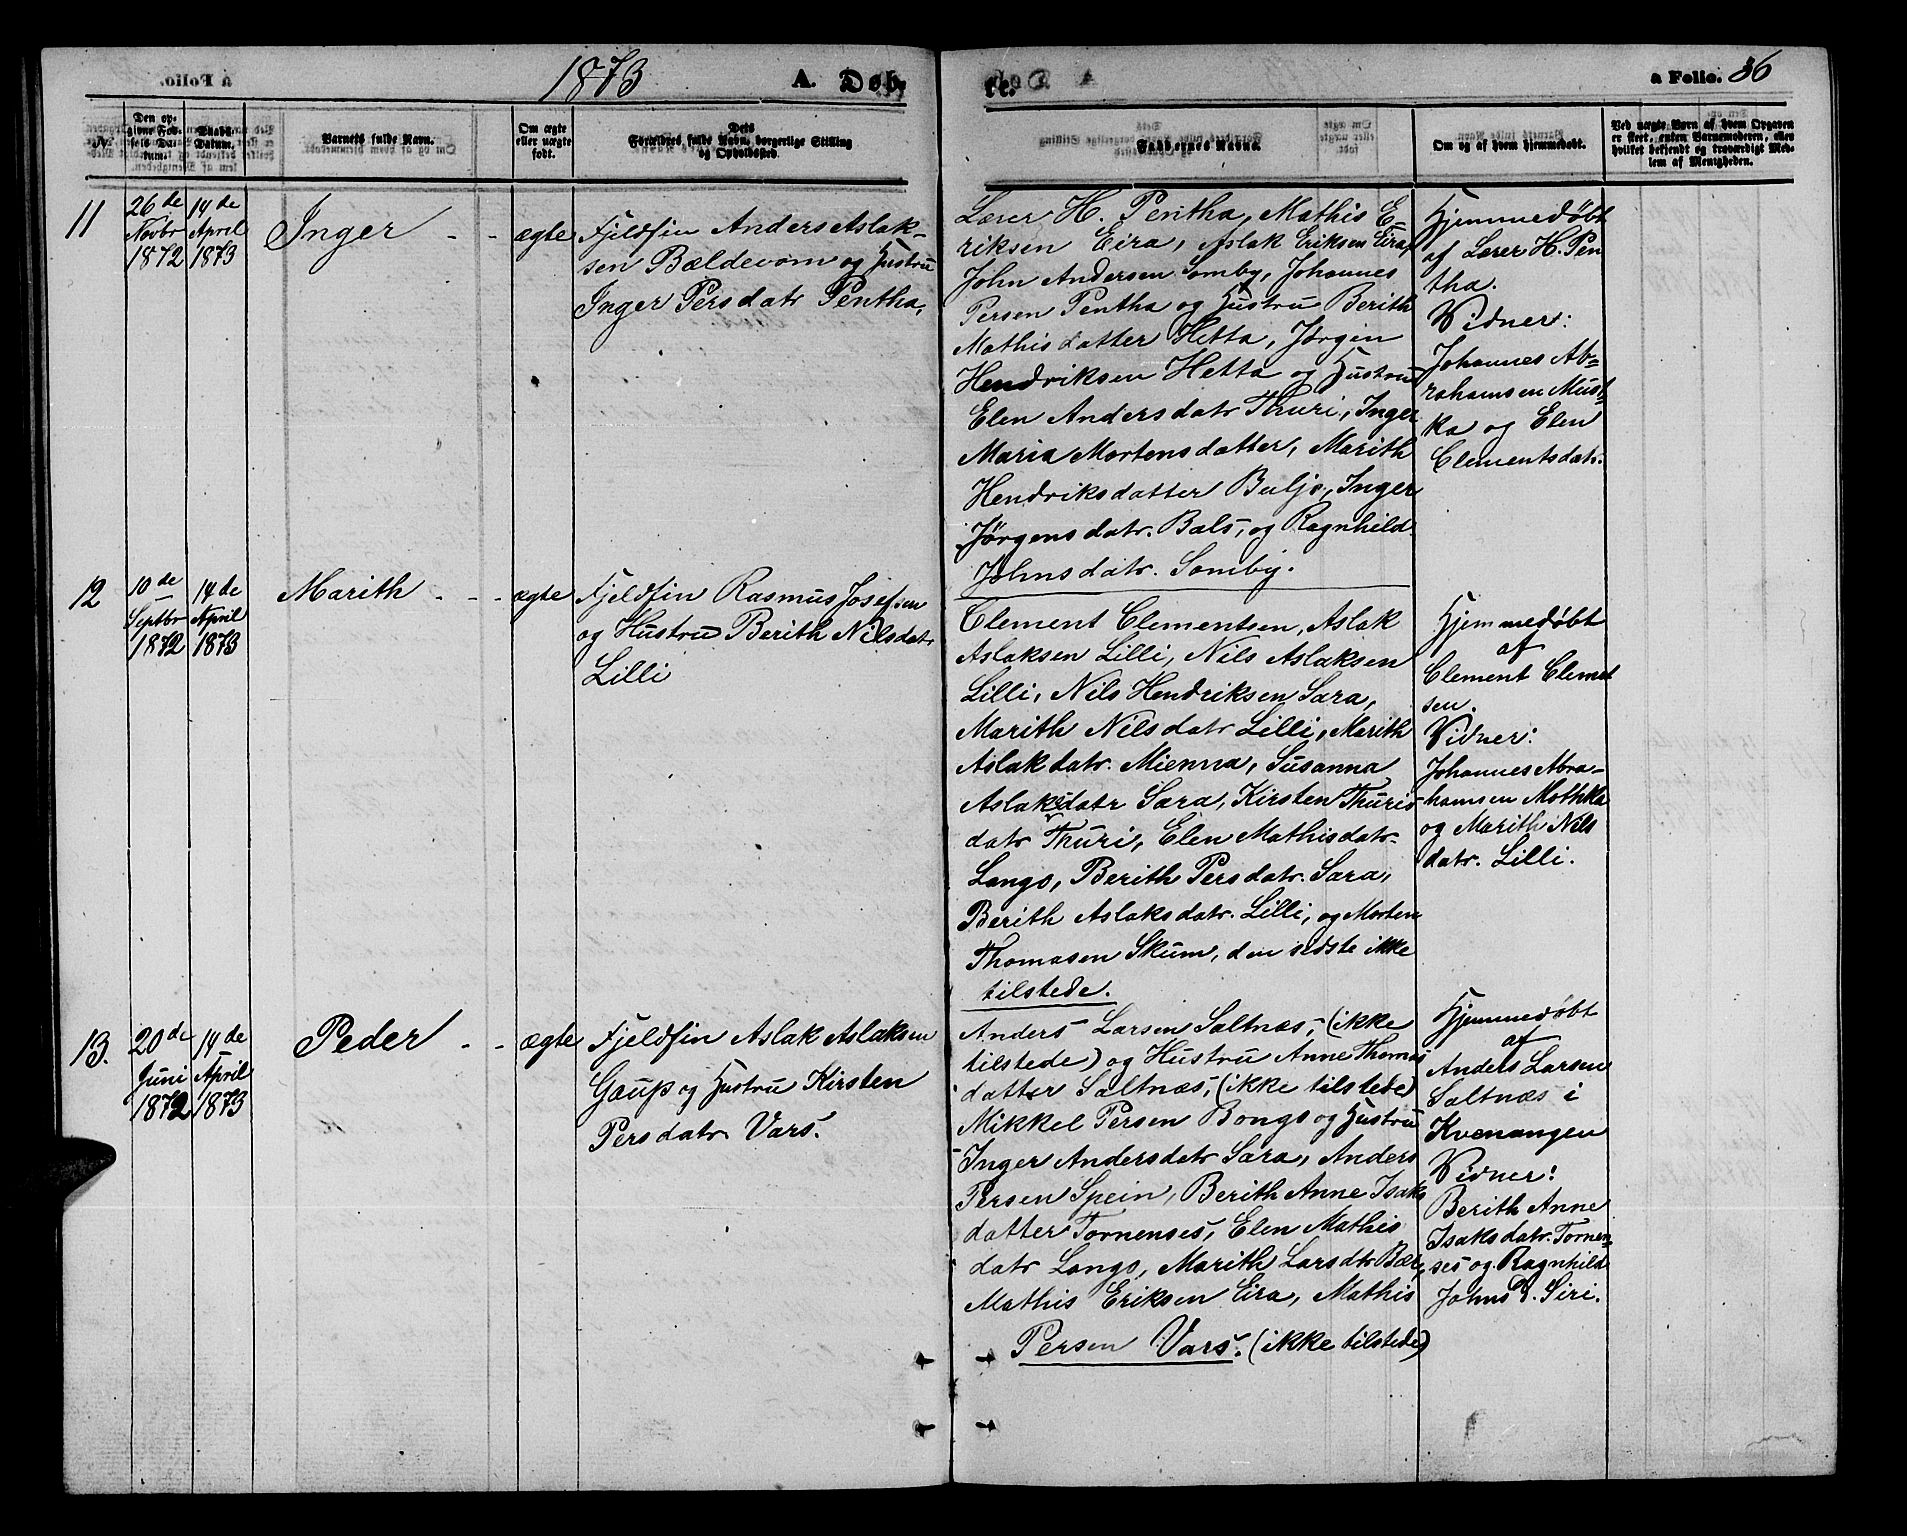 1873 A. Døbte. a Folio. 36
No.
Den opgivne Fødsels Datum.
Daabs Datum.
Barnets fulde Navn.
Om ægte eller uægte født.
Dets Forældres fulde Navn, borgerlige Stilling og Opholdssted.
Faddernes Navne.
Om og af hvem hjemmedøbt.
Ved uægte Børn af hvem Opgaven er skeet, enten Barnemoderen, eller hvilket bekjendt og troværdigt Medlem af Menigheden.
11
26de
Novbr
1872
14de
April
1873
Inger - -
ægte
Fjeldfin Anders Aslak-
sen Bældevom og Hustru
Inger Persdatr Pentha.
Lærer H. Pentha, Mathis E-
riksen Eira, Aslak Eriksen Eira,
John Andersen Somby, Johannes
Persen Pentha og Hustru Berith
Mathisdatter Hetta, Jørgen
Hendriksen Hetta og Hustru
Elen Andersdatr Thuri, Inger
Maria Mortensdatter, Marith
Hendriksdatter Buljo, Inger
Jørgensdatr. Bals, og Ragnhild
Johnsdatr. Somby.
Hjemmedøbt
af Lærer H. Pen
tha.
Vidner:
Johannes Ab-
rahamsen Must-
ka og Elen
Clementsdatr.
12
10de
Septbr
1872
14de
April
1873
Marith - - -
ægte
Fjeldfin Rasmus Josefsen
og Hustru Berith Nilsdatr
Lilli
Clement Clementsen, Aslak
Aslaksen Lilli, Nils Aslaksen
Lilli, Nils Hendriksen Sara,
Marith Nilsdatr Lilli, Marith
Aslakdatr. Mienna, Susanna
Aslaksdatr Sara, Kirsten Thuris-
datr Thuri, Elen Mathisdatr-
Lango, Berith Persdatr. Sara,
Berith Aslaksdatr. Lilli, og Morten
Thomasen Skum, den sidste ikke
tilstede.
Hjemmedøbt
af
Clement Clement
sen.
Vidner:
Johannes Abra-
hamsen Mothka
og Marith Nils
datr. Lilli.
13.
20de
Juni
1872
14de
April
1873
Peder - -
ægte
Fjeldfin Aslak Aslaksen
Gaup og Hustru Kirsten
Persdatr Vars.
Anders Larsen Saltnæs, (ikke
tilstede) og Hustru Anne Thomas
datter Saltnæs, (ikke tilstede)
Mikkel Persen Bongo og Hustru
Inger Andersdatr Sara, Anders
Persen Spein, Berith Anne Isaks
datter Tornenses, Elen Mathis
datr Lango, Marith Larsdtr Bær,
Mathis Eriksen Eira, Mathis
Persen Vars. (ikke tilstede)
Hjemmedøbt
af
Anders Larsen
Saltnæs i
Kvenangen
Vidner:
Berith Anne
Isaksdatr. Tornen-
ses og Ragnhild
Johns D. Siri.